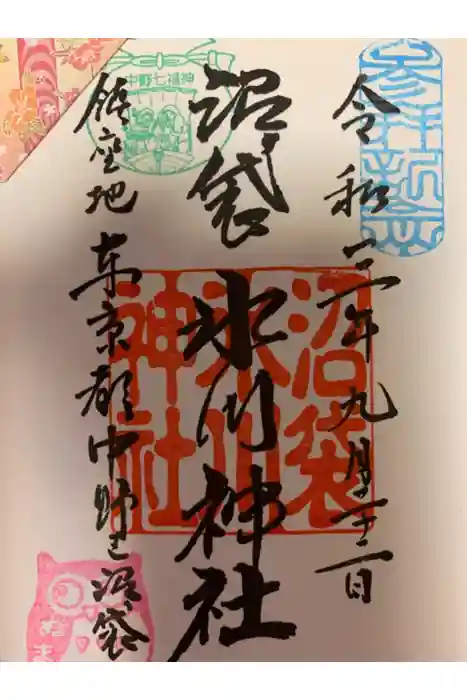 令和三年九月二十二日
沼袋
氷川神社
鎮座地 東京都中野区沼袋
中野七福神
沼袋
氷川
神社
参拝
ぬま